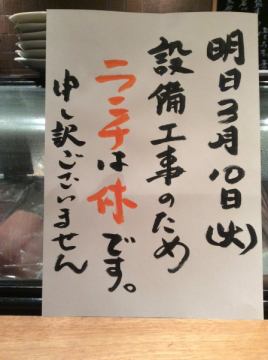 明日3月10日(火)
設備工事のため
ランチは休です。
申し訳ございません